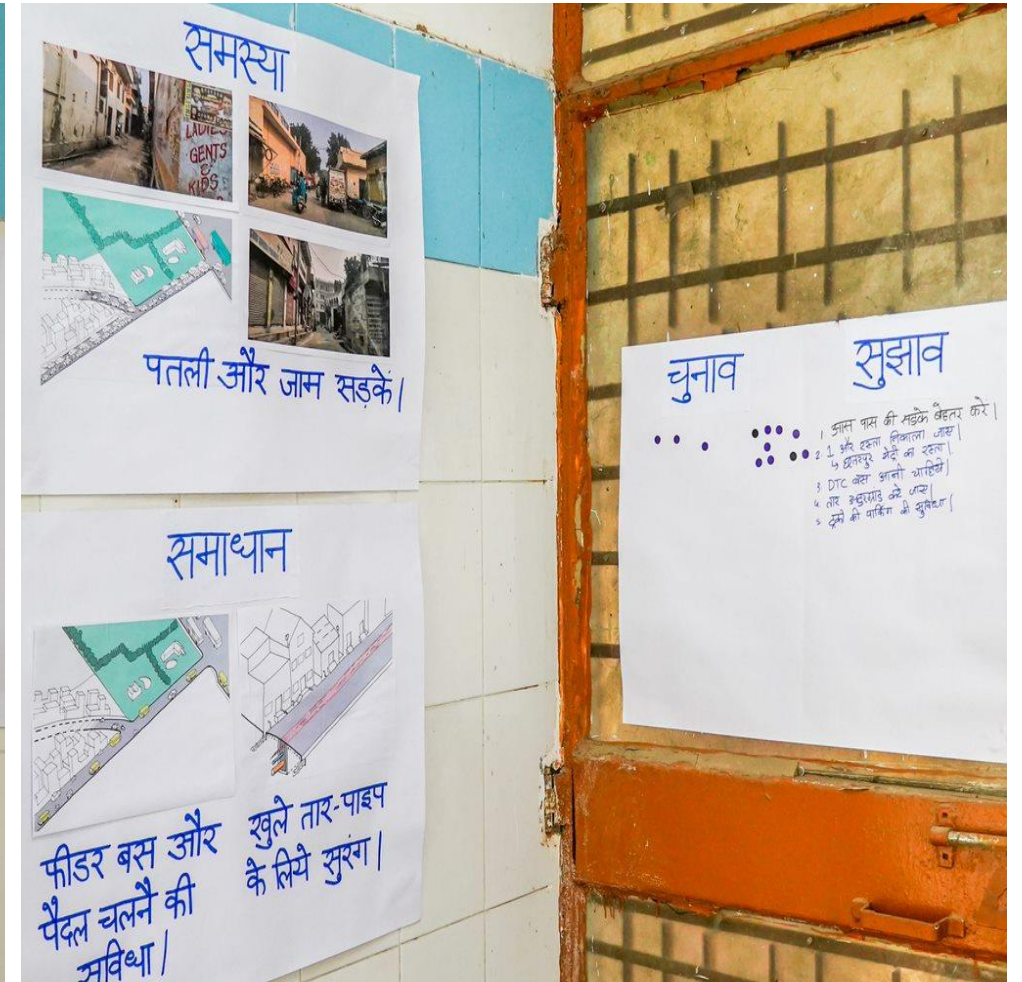 समस्या
LADIES
GENTS
&
KIDS
पतली और जाम सड़कें।
समाधान
फीडर बस और
पैदल चलनै की
सुविधा।
खुले तार-पाइप
के लिये सुरंग।
चुनाव
सुझाव
1. आस पास की सडके बेहतर करे।
2. 1 और रस्ता निकाला जाए।
↳ छतरपुर मेट्रो का रस्ता।
3 DTC बस आनी चाहिये।
4 तार अंडरग्रांड करे जाए।
5. ट्रको की पार्किंग की सुविधा।